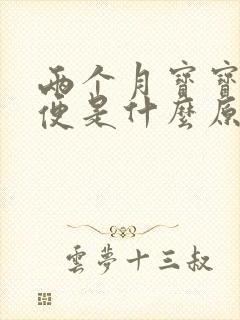 兩个月寶寶
便是什麼原
雲夢十三叔